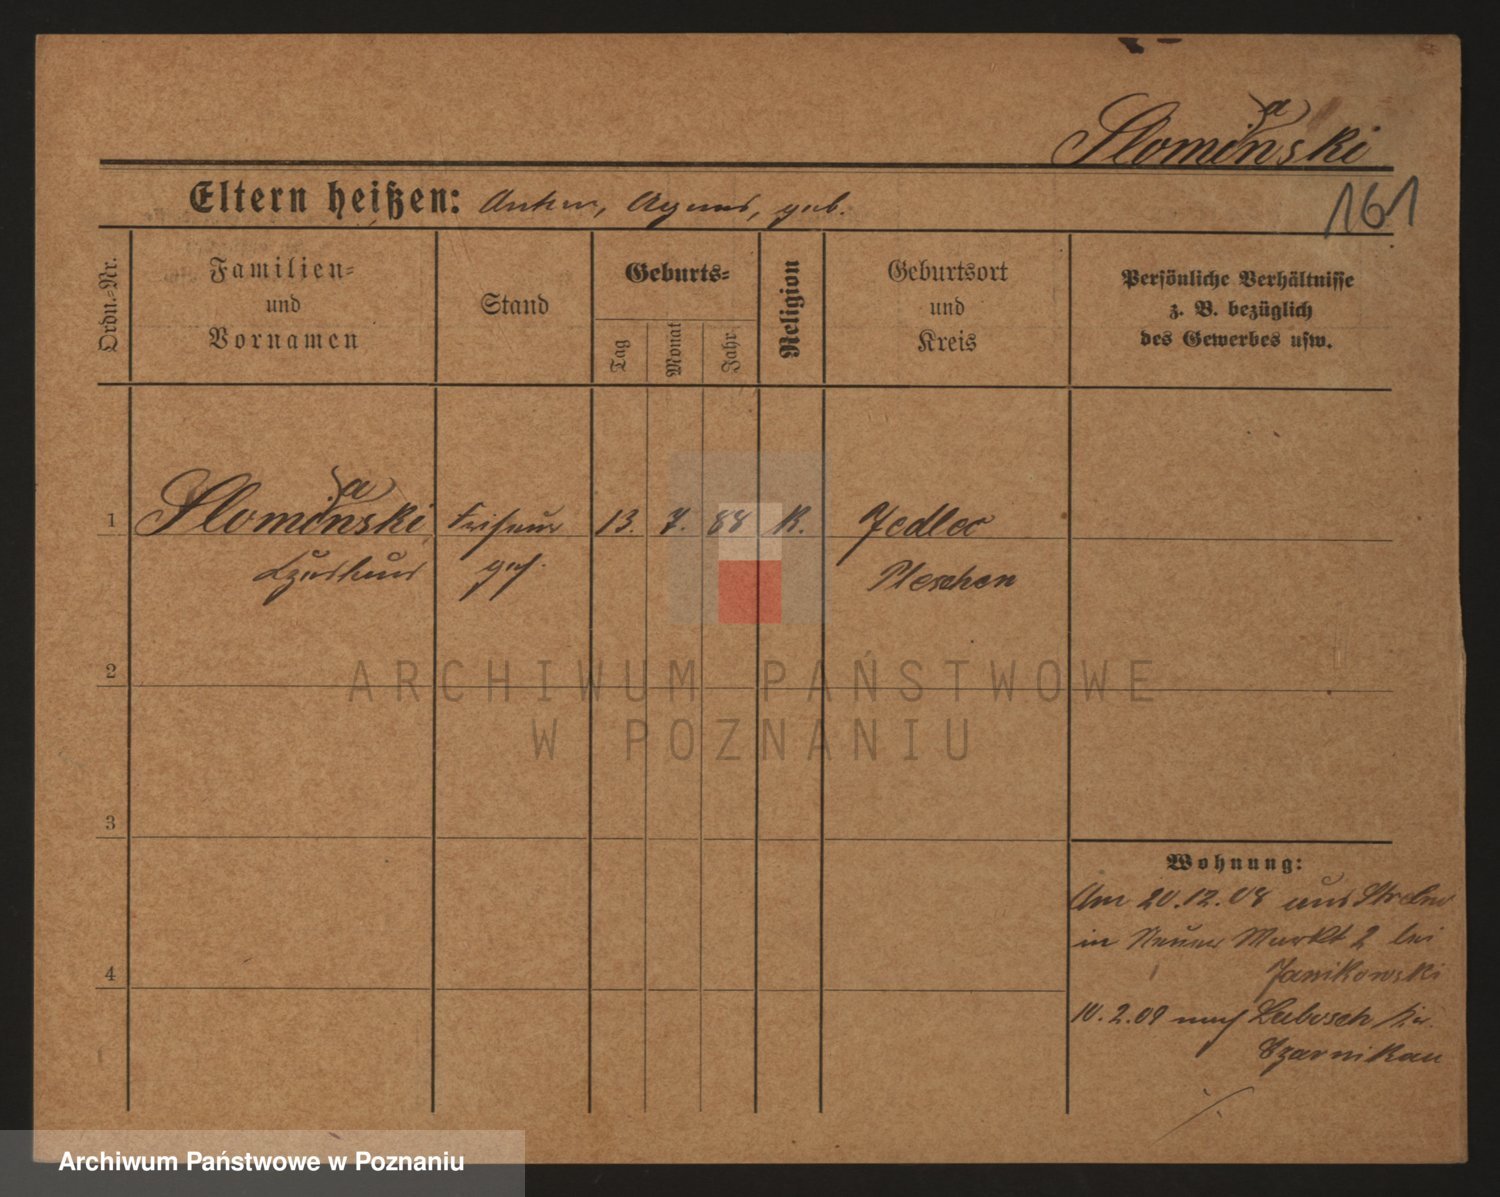 Slominski
a
Eltern heißen: Anton, Agnes, geb.
161
Ordn.-Nr.
Familien-
und
Vornamen
Stand
Geburts-
Tag
Monat
Jahr
Religion
Geburtsort
und
Kreis
Persönliche Verhältnisse
z. B. bezüglich
des Gewerbes usw.
a
1 Slominski Friseur 13. 7. 88 K. Jedlec
geh. Pleschen
2
3
4
Wohnung:
Am 20.12.08 aus Strelno
in Neuer Markt 2 bei
Janikowski
10.2.09 nach Lubosch Kr.
Czarnikau
ARCHIWUM PAŃSTWOWE
W POZNANIU
Archiwum Państwowe w Poznaniu